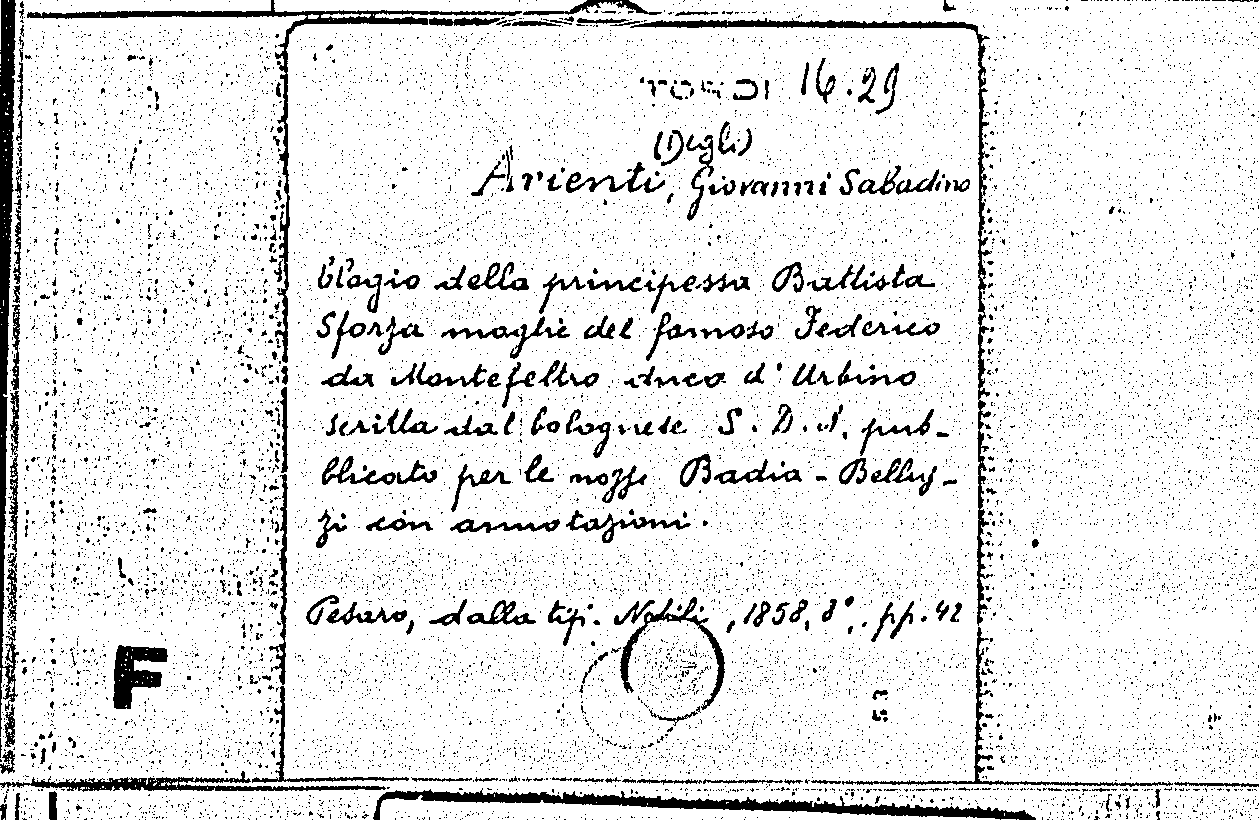 TORDI 16.29
(Degli)
Arienti, Giovanni Sabadino
Elogio della principessa Battista
Sforza moglie del famoso Federico
da Montefeltro duca d'Urbino
scritta dal bolognese S. D. A. pub-
blicato per le nozze Badia - Belluz-
zi con annotazioni.
Pesaro, dalla tip. Nobili, 1858, 8°, pp. 42
F